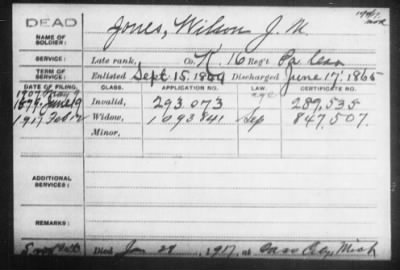 DEAD
NAME OF SOLDIER: Jones, Wilson J. M.
SERVICE: Late rank, Co. K, 16 Reg't Pa Cav
TERM OF SERVICE: Enlisted Sept 15, 1864 Discharged June 17, 1865
DATE OF FILING. CLASS. APPLICATION NO. LAW. CERTIFICATE NO.
1907 May 9 age
1879 June 19 Invalid, 293.073 289,535
1917 Feb 12 Widow, 1093841 Sep 847,507.
Minor,
ADDITIONAL SERVICES:
REMARKS:
Died Jan 28, 1917, at Cass City, Mich